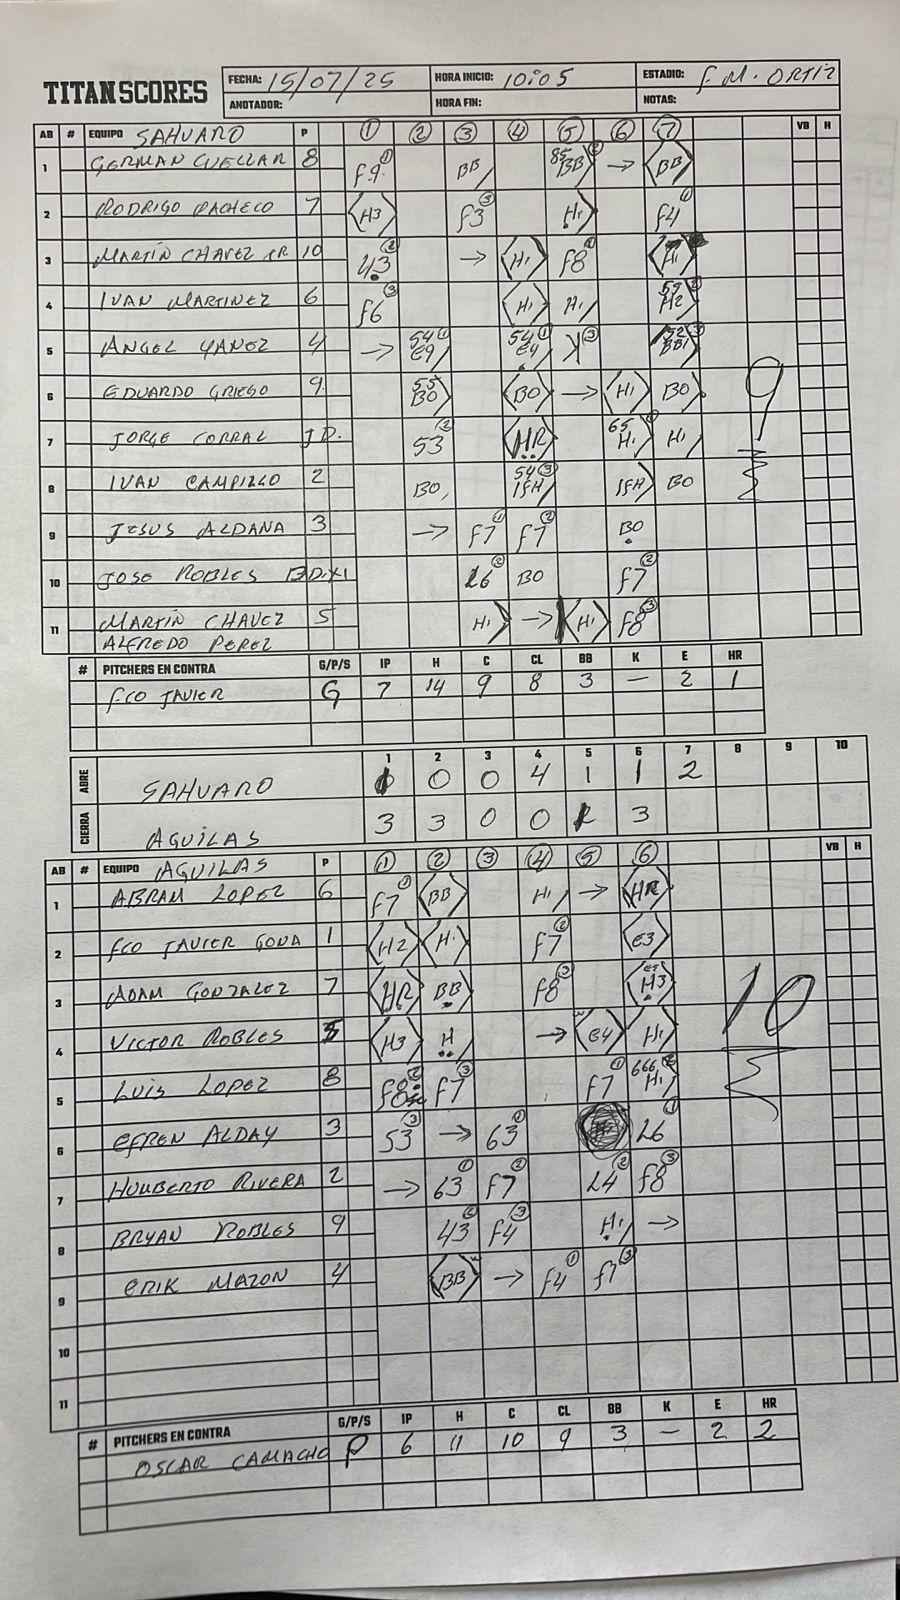 TITAN SCORES
FECHA: 15/07/25 HORA INICIO: 10:05 ESTADIO: F. M. ORTIZ
ANOTADOR: HORA FIN: NOTAS:
AB # EQUIPO SAHUARO P 1 2 3 4 5 6 7 VB H
1 GERMAN CUELLAR 8 F9 1 BB 85 BB 2 → BB
2 RODRIGO PACHECO 7 H3 F3 3 H1 F4 1
3 MARTÍN CHAVEZ JR 10 43 2 → H1 F8 1 H1
4 IVAN MARTINEZ 6 F6 3 H1 H1 55 H2 2
5 ANGEL YANEZ 4 → 54 E9 1 54 E4 1 K 3 52 BB1 3
6 EDUARDO GRIEGO 9 55 BO BO → H1 BO 9
7 JORGE CORRAL J D. 53 2 HR 65 H1 1 H1
8 IVAN CAMPILLO 2 BO 54 IFH 3 IFH BO
9 JESUS ALDANA 3 → F7 1 F7 2 BO
10 JOSE ROBLES 26 2 BO F7 2
11 MARTÍN CHAVEZ 5 H1 → H1 F8 3
ALFREDO PEREZ
# PITCHERS EN CONTRA G/P/S IP H C CL BB K E HR
FCO JAVIER G 7 14 9 8 3 — 2 1
1 2 3 4 5 6 7 8 9 10
ABRE SAHUARO 0 0 4 1 1 2
CIERRA AGUILAS 3 3 0 0 3
AB # EQUIPO AGUILAS P 1 2 3 4 5 6 VB H
1 ABRAM LOPEZ 6 F7 1 BB H1 → HR
2 FCO JAVIER 1 H2 H1 F7 2 E3
3 ADAM GONZALEZ 7 HR BB F8 3 H3
4 VICTOR ROBLES 5 H3 H → E4 H1 10
5 LUIS LOPEZ 8 F8 2 F7 3 F7 1 666 H1
6 EFREN ALDAY 3 53 3 → 63 1 26 1
7 HUMBERTO RIVERA 2 → 63 1 F7 2 L4 2 F8 3
8 BRYAN ROBLES 9 43 2 F4 3 H1 →
9 ERIK MAZON 4 BB → F4 1 F7 3
10
11
# PITCHERS EN CONTRA G/P/S IP H C CL BB K E HR
OSCAR CAMACHO P 6 11 10 9 3 — 2 2